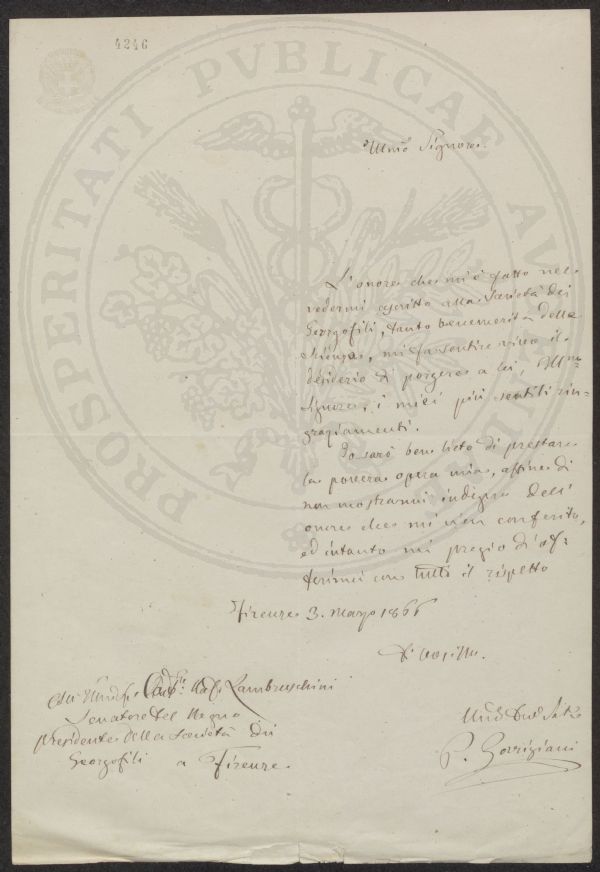 4246
PROSPERITATI PVBLICAE AVGENDAE
Illmo Signore.
L'onore che mi è fatto nel
vedermi ascritto alla Società dei
Georgofili, tanto benemerita della
Scienza, mi fa sentire vivo il
desiderio di porgere a lei, Illmo
Signore, i miei più sentiti rin-
graziamenti.
Io sarò ben lieto di prestare
la povera opera mia, affine di
non mostrarmi indegno dell'
onore che mi vien conferito,
ed intanto mi pregio di of-
ferirmi con tutto il rispetto
Firenze 3. Marzo 1866
Di Vossia Illma.
All' Illmo Sig. Raf. Lambruschini
Senatore del Regno
Presidente della Società dei
Georgofili a Firenze.
Umo Devo
P. Gorrigiani